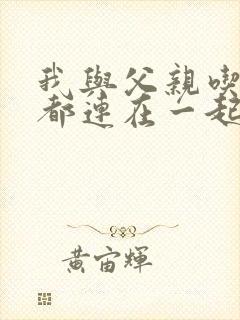 我與父親喫
都連在一起
黃宙輝